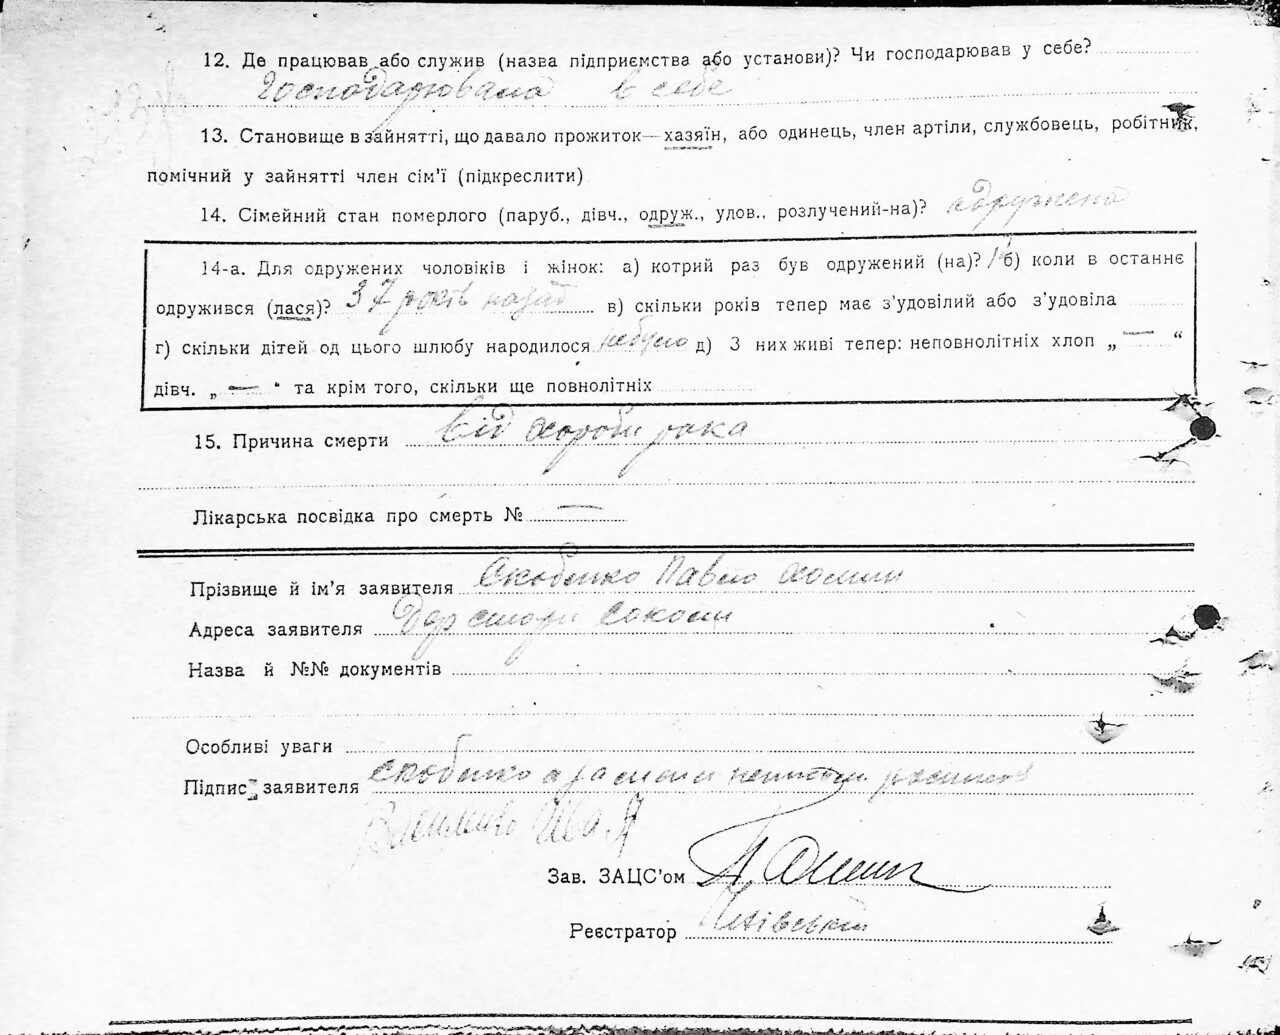 12. Де працював або служив (назва підприємства або установи)? Чи господарював у себе?
Господарювала в себе
13. Становище в зайнятті, що давало прожиток—хазяїн, або одинець, член артіли, службовець, робітник,
помічний у зайнятті член сім’ї (підкреслити)
14. Сімейний стан померлого (паруб., дівч., одруж., удов., розлучений-на)? одружена
14-а. Для одружених чоловіків і жінок: а) котрий раз був одружений (на)? 1 б) коли в останнє
одружився (лася)? 37 років назад в) скільки років тепер має з’удовілий або з’удовіла
г) скільки дітей од цього шлюбу народилося небуло д) З них живі тепер: неповнолітніх хлоп „ — “
дівч. „ — “ та крім того, скільки ще повнолітніх
15. Причина смерти від хороби рака
Лікарська посвідка про смерть № —
Прізвище й ім’я заявителя Скобенко Павло
Адреса заявителя
Назва й №№ документів
Особливі уваги
Підпис заявителя Скобенко
Зав. ЗАЦС’ом
Реєстратор